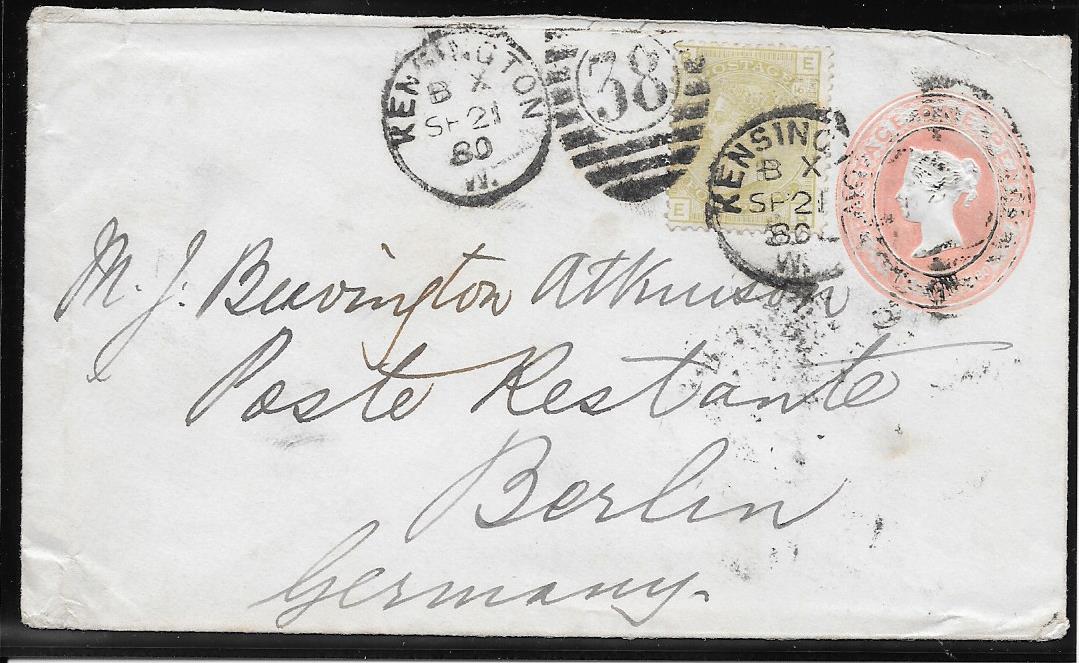 KENSINGTON
B X
SP 21
80
W.
38
POSTAGE
E
16
E
KENSING
B X
SP 21
80
W.
POSTAGE ONE PENNY
M. J. Bevington Atkinson
Poste Restante
Berlin
Germany.